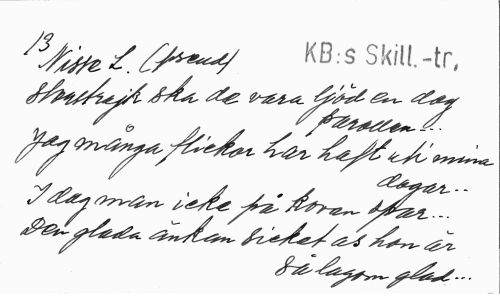 13
Nisse L. (pseud)
KB:s Skill.-tr.
Storstrejk ska de vara ljöd en dag
parollen...
Jag många flickor har haft uti mina
dagar...
I dag man icke på kovan spar...
Den glada änkan sicket as hon är
så lagom glad...